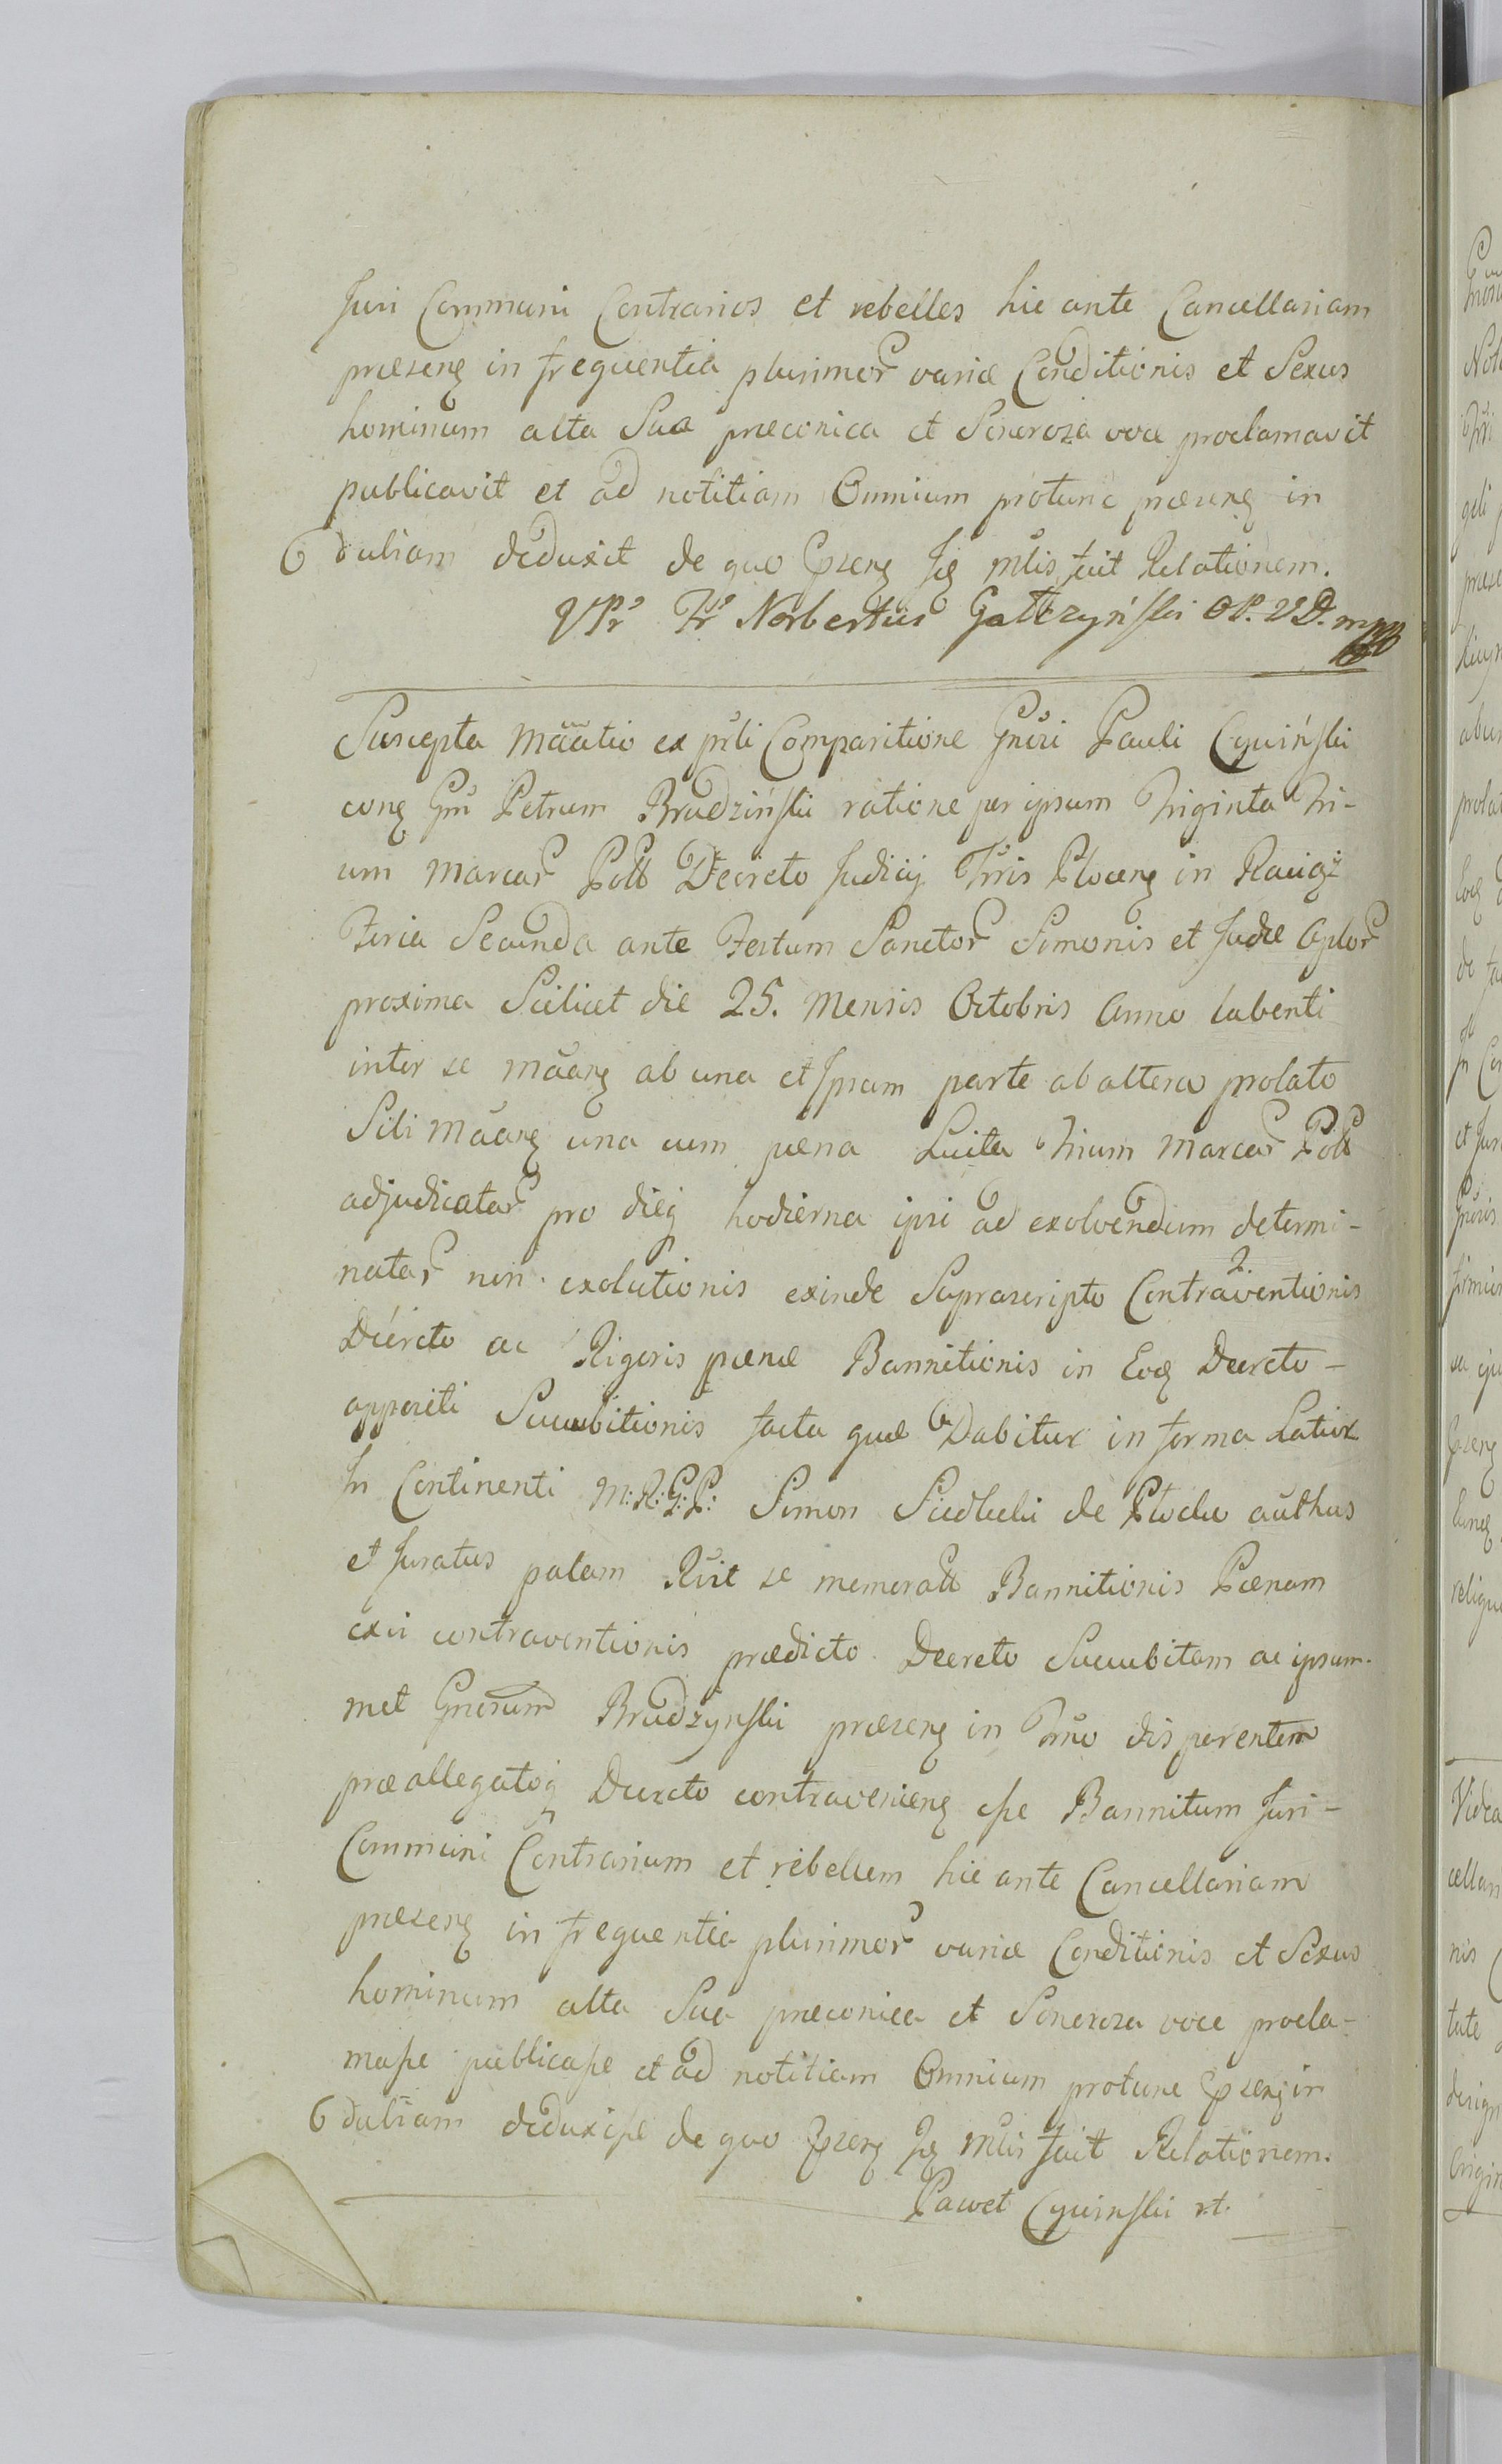 Juri Communi Contrarios et rebelles hic ante Cancellariam
præsenꝫ in frequentia plurimorͬ variæ Conditionis et Sexus
hominum alta Sua præconica et Sonoroza voce proclamavit
publicavit et ad notitiam Omnium protunc præsenꝫ in
dubiam deduxit de quo Præsenꝫ Jꝫ Mtis fecit Relationem.
VPr Fr Norbertus Gałczyński OP. VD. mpp
Suscepta Mãatio ex prñti Comparitione Gnũri Pauli Cywiński
conꝫ Gm̃ Petrum Brudziński ratione per ipsum Triginta Tri-
um Marcarͬ Poll Decreto Judicij Trris Plocenꝫ in Raciąż
Feria Secunda ante Festum Sanctorͬ Simonis et Judæ Aplorͬ
proxima Scilicet die 25. Mensis Octobris Anno labenti
inter se Mãanꝫ ab una et Ipsum parte ab altera prolato
Sibi Mãanꝫ una cum pæna Luita Trium Marcarͬ Poll
adjudicatarͬ pro dieq hodierna ipsi ad exolvendum determi-
natarͬ non exolutionis exinde Suprascripto Contraventionis
2.
Decreto ac Rigoris pænæ Bannitionis in Eoꝫ Decreto -
appositi Succubitionis facta quæ Dabitur in forma Latiori
In Continenti M:R:G:P: Simon Siedlecki de Płocko authus
et Juratus palam Rũit se memoratt Bannitionis Pænam
exvi contraventionis prædicto Decreto Succubitam ac ipsum-
met Gnerosum Brudzynski præsenꝫ in Tmno disparentem
præallegatoq Decreto contravenienꝫ esse Bannitum Juri-
Communi Contrarium et rebellem hic ante Cancellariam
præsenꝫ in frequentia plurimorͬ variæ Conditionis et Sexus
hominum alta Sua præconica et Sonoroza voce procla-
masse publicasse et ad notitiam Omnium protunc Præsenꝫ in
dubiam deduxisse de quo Præsenꝫ Jꝫ Mtis fecit Relationem.
Paweł Cywinski rt.